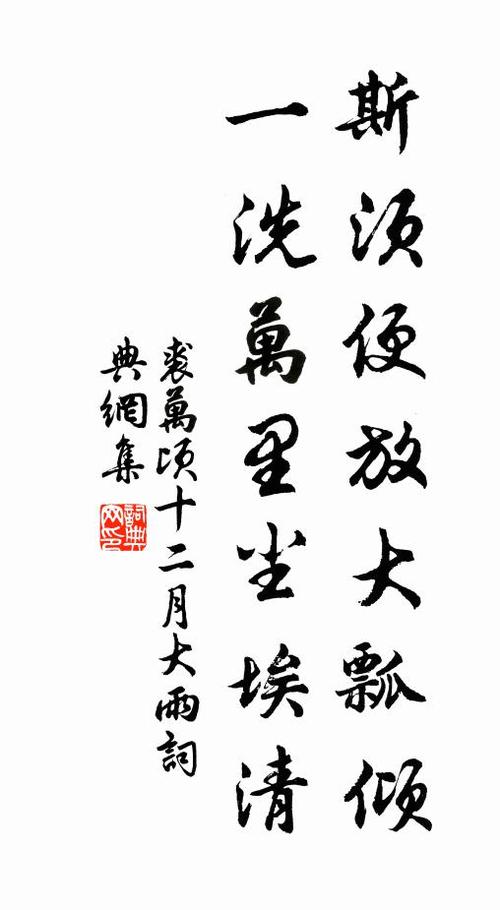 斯須便放大瓢傾
一洗萬里尘埃清
裘萬頃十二月大雨詞
典網集
詞典网印